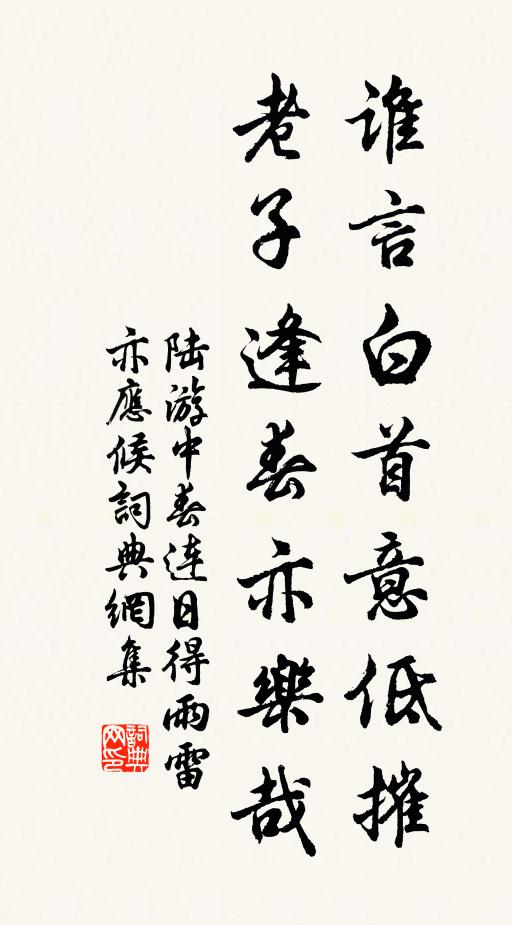 谁言白首意低摧
老子逢春亦樂哉
陆游中春连日得雨雷
亦應候詞典網集
詞典
网印